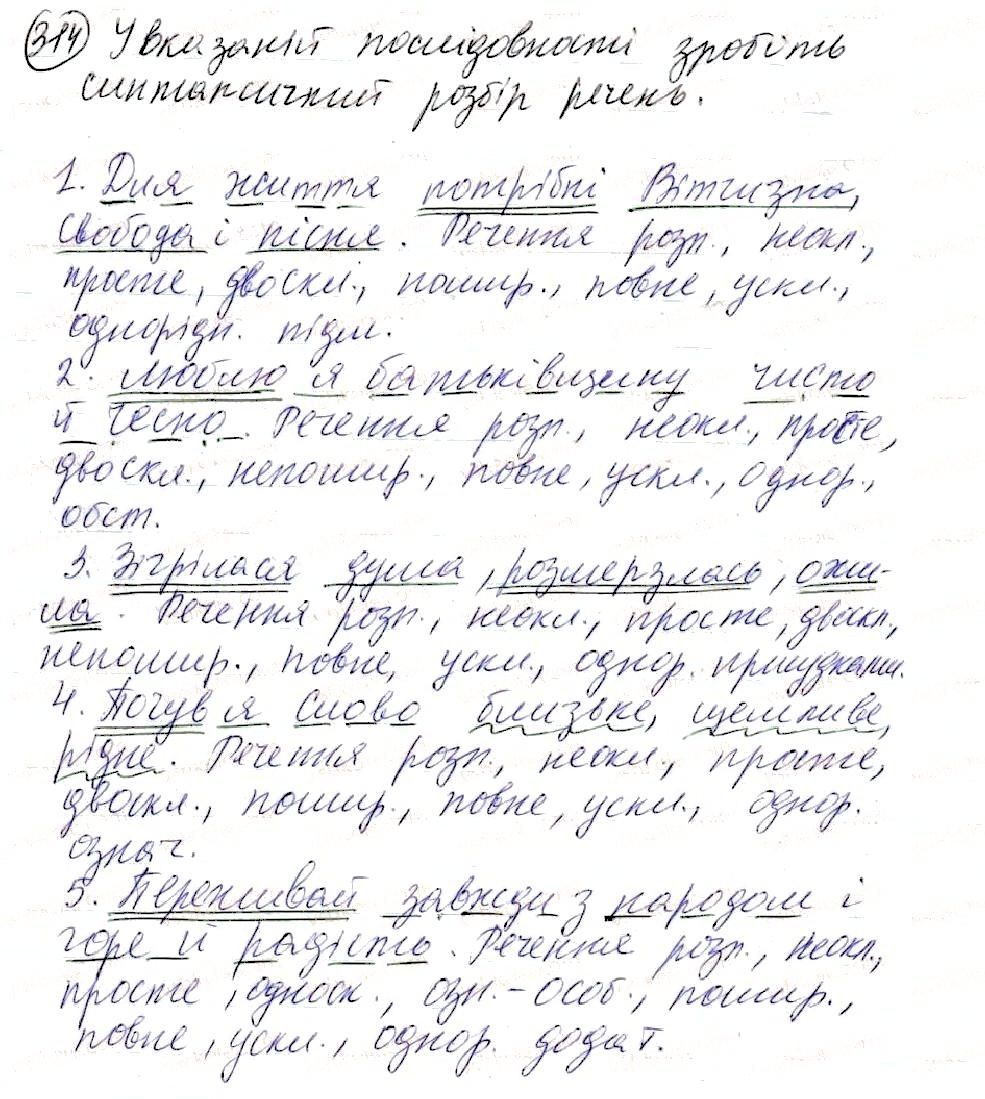 314 У вказаній послідовності зробіть
синтаксичний розбір речень.
1. Для життя потрібні Вітчизна,
свобода і пісня. Речення розп., неокл.,
просте, двоскл., пошир., повне, ускл.,
однорідн. підм.
2. Люблю я батьківщину чисто
й чесно. Речення розп., неокл., просте,
двоскл., непошир., повне, ускл., однор.,
обст.
3. Зігрілася душа, розмерзлась, ожи-
ла. Речення розп., неокл., просте, двоскл.,
непошир., повне, ускл., однор. присудками.
4. Почув я слово близьке, щемливе,
рідне. Речення розп., неокл., просте,
двоскл., пошир., повне, ускл., однор.
означ.
5. Переживай завжди з народом і
горе й радість. Речення розп., неокл.,
просте, односк., озн.-особ., пошир.,
повне, ускл., однор. додат.